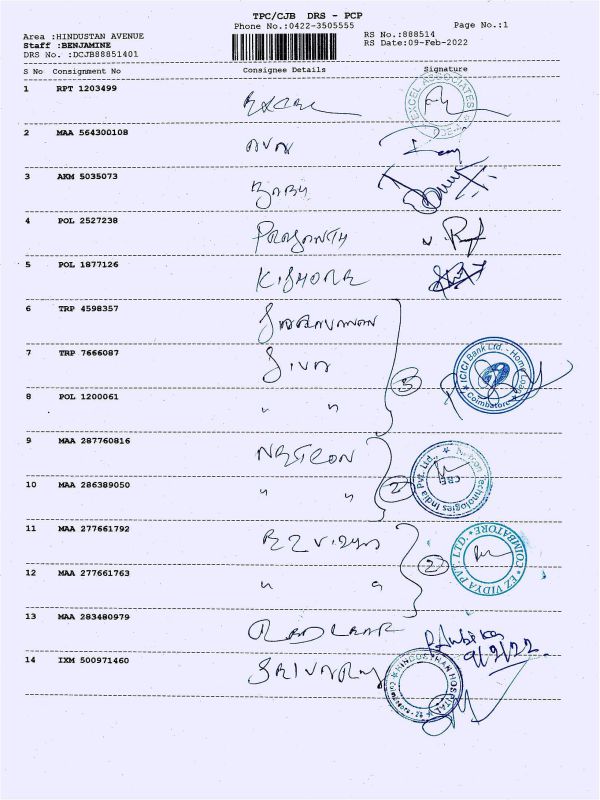 TPC/CJB DRS - PCP
Phone No.:0422-3505555 Page No.:1
Area :HINDUSTAN AVENUE RS No.:888514
Staff :BENJAMINE RS Date:09-Feb-2022
DRS No. :DCJB88851401
S No Consignment No Consignee Details Signature
1 RPT 1203499 EXCEL EXCEL ASSOCIATES
2 MAA 564300108 AVN
3 AKM 5035073 BABU
4 POL 2527238 PRASANTH
5 POL 1877126 KISHORE
6 TRP 4598357 SARAVANAN
7 TRP 7666087 SIVA 3 ICICI Bank Ltd. - Home Loan Coimbatore
8 POL 1200061 " "
9 MAA 287760816 NETCON 2 Technologies India Pvt. Ltd., CBE
10 MAA 286389050 " "
11 MAA 277661792 EZ VIDYA 2 EZ VIDYA PVT. LTD. COIMBATORE
12 MAA 277661763 " "
13 MAA 283480979 9/2/22
14 IXM 500971460 HINDUSTHAN HOSPITAL